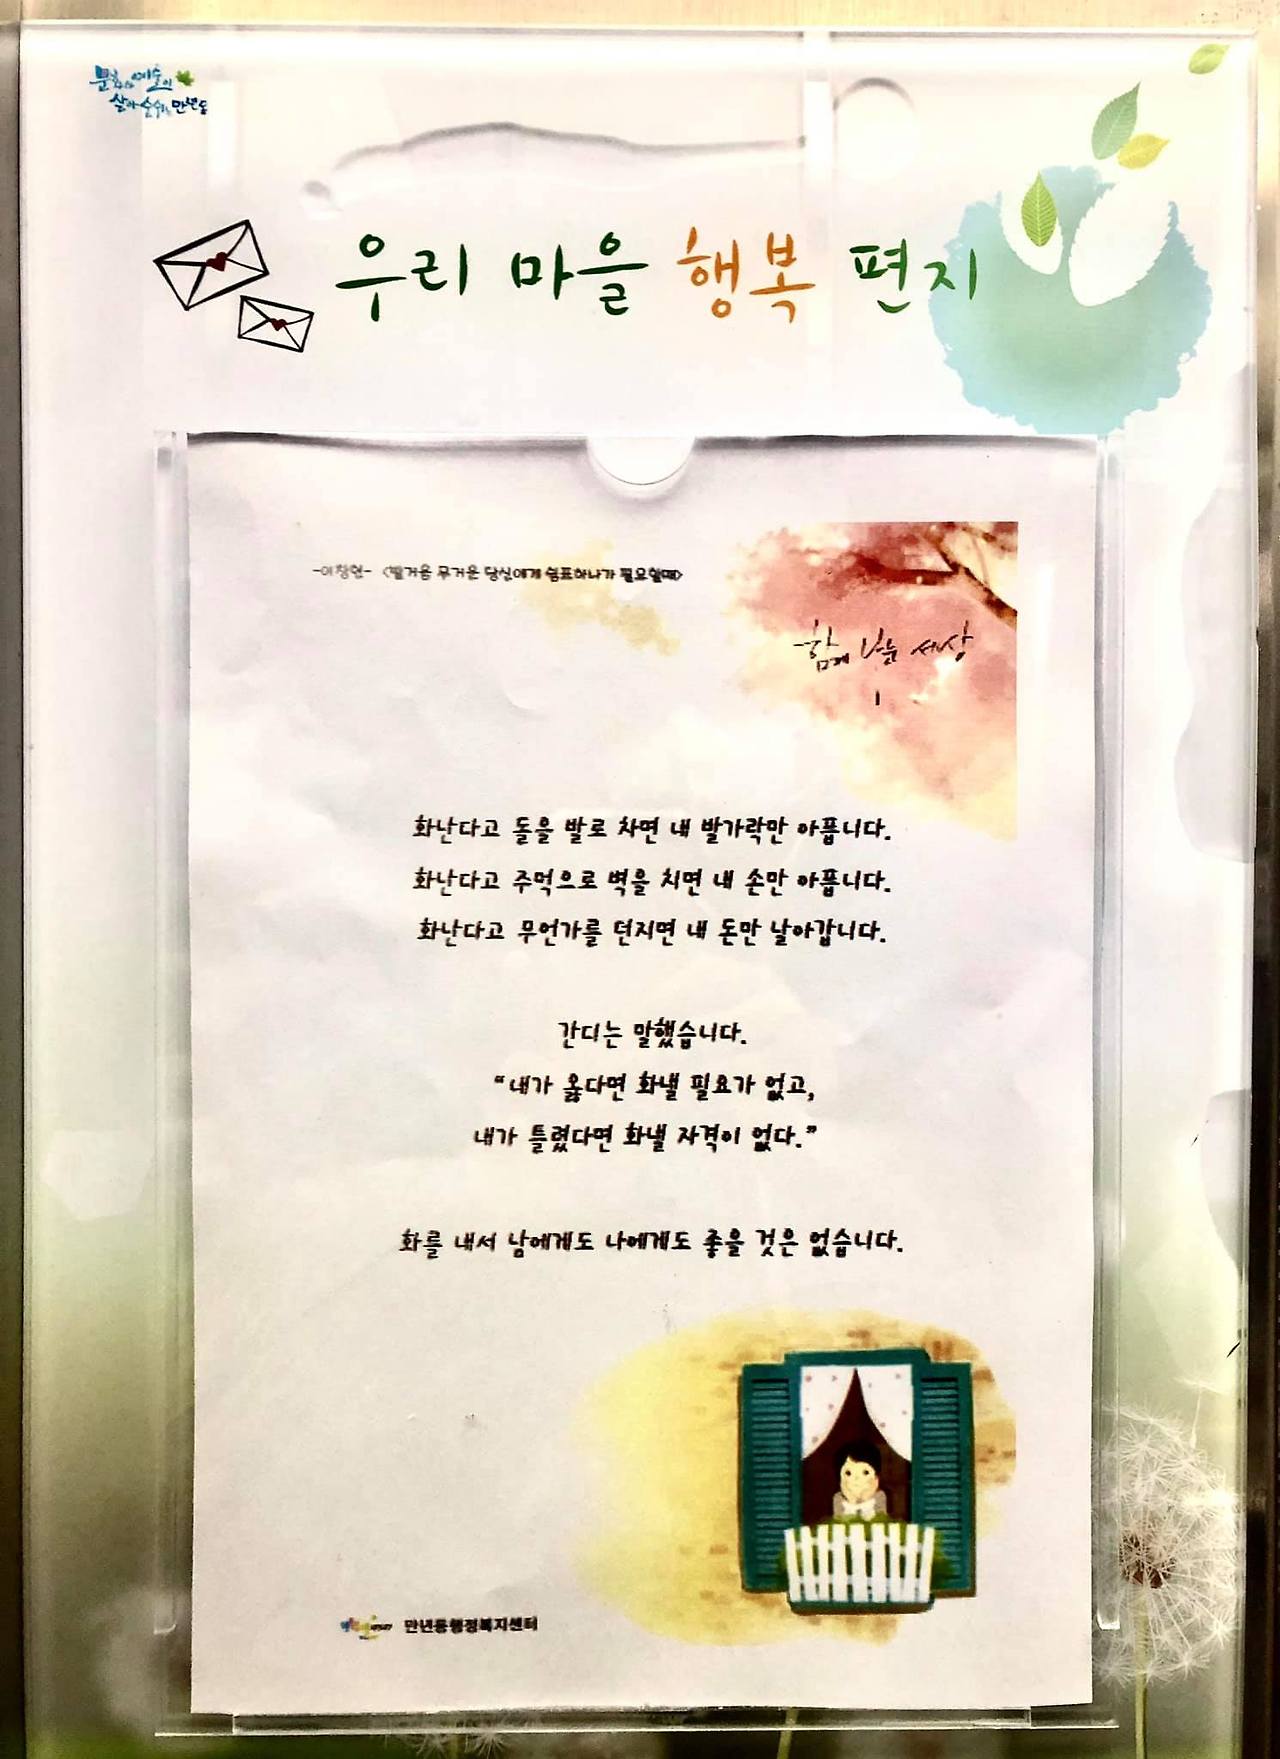 문화와 예술이
살아 숨쉬는 만년동
우리 마을 행복 편지
-이창현- <발걸음 무거운 당신에게 쉼표하나가 필요할때>
함께 나눈 세상
화난다고 돌을 발로 차면 내 발가락만 아픕니다.
화난다고 주먹으로 벽을 치면 내 손만 아픕니다.
화난다고 무언가를 던지면 내 돈만 날아갑니다.
간디는 말했습니다.
“내가 옳다면 화낼 필요가 없고,
내가 틀렸다면 화낼 자격이 없다.”
화를 내서 남에게도 나에게도 좋을 것은 없습니다.
만년동행정복지센터